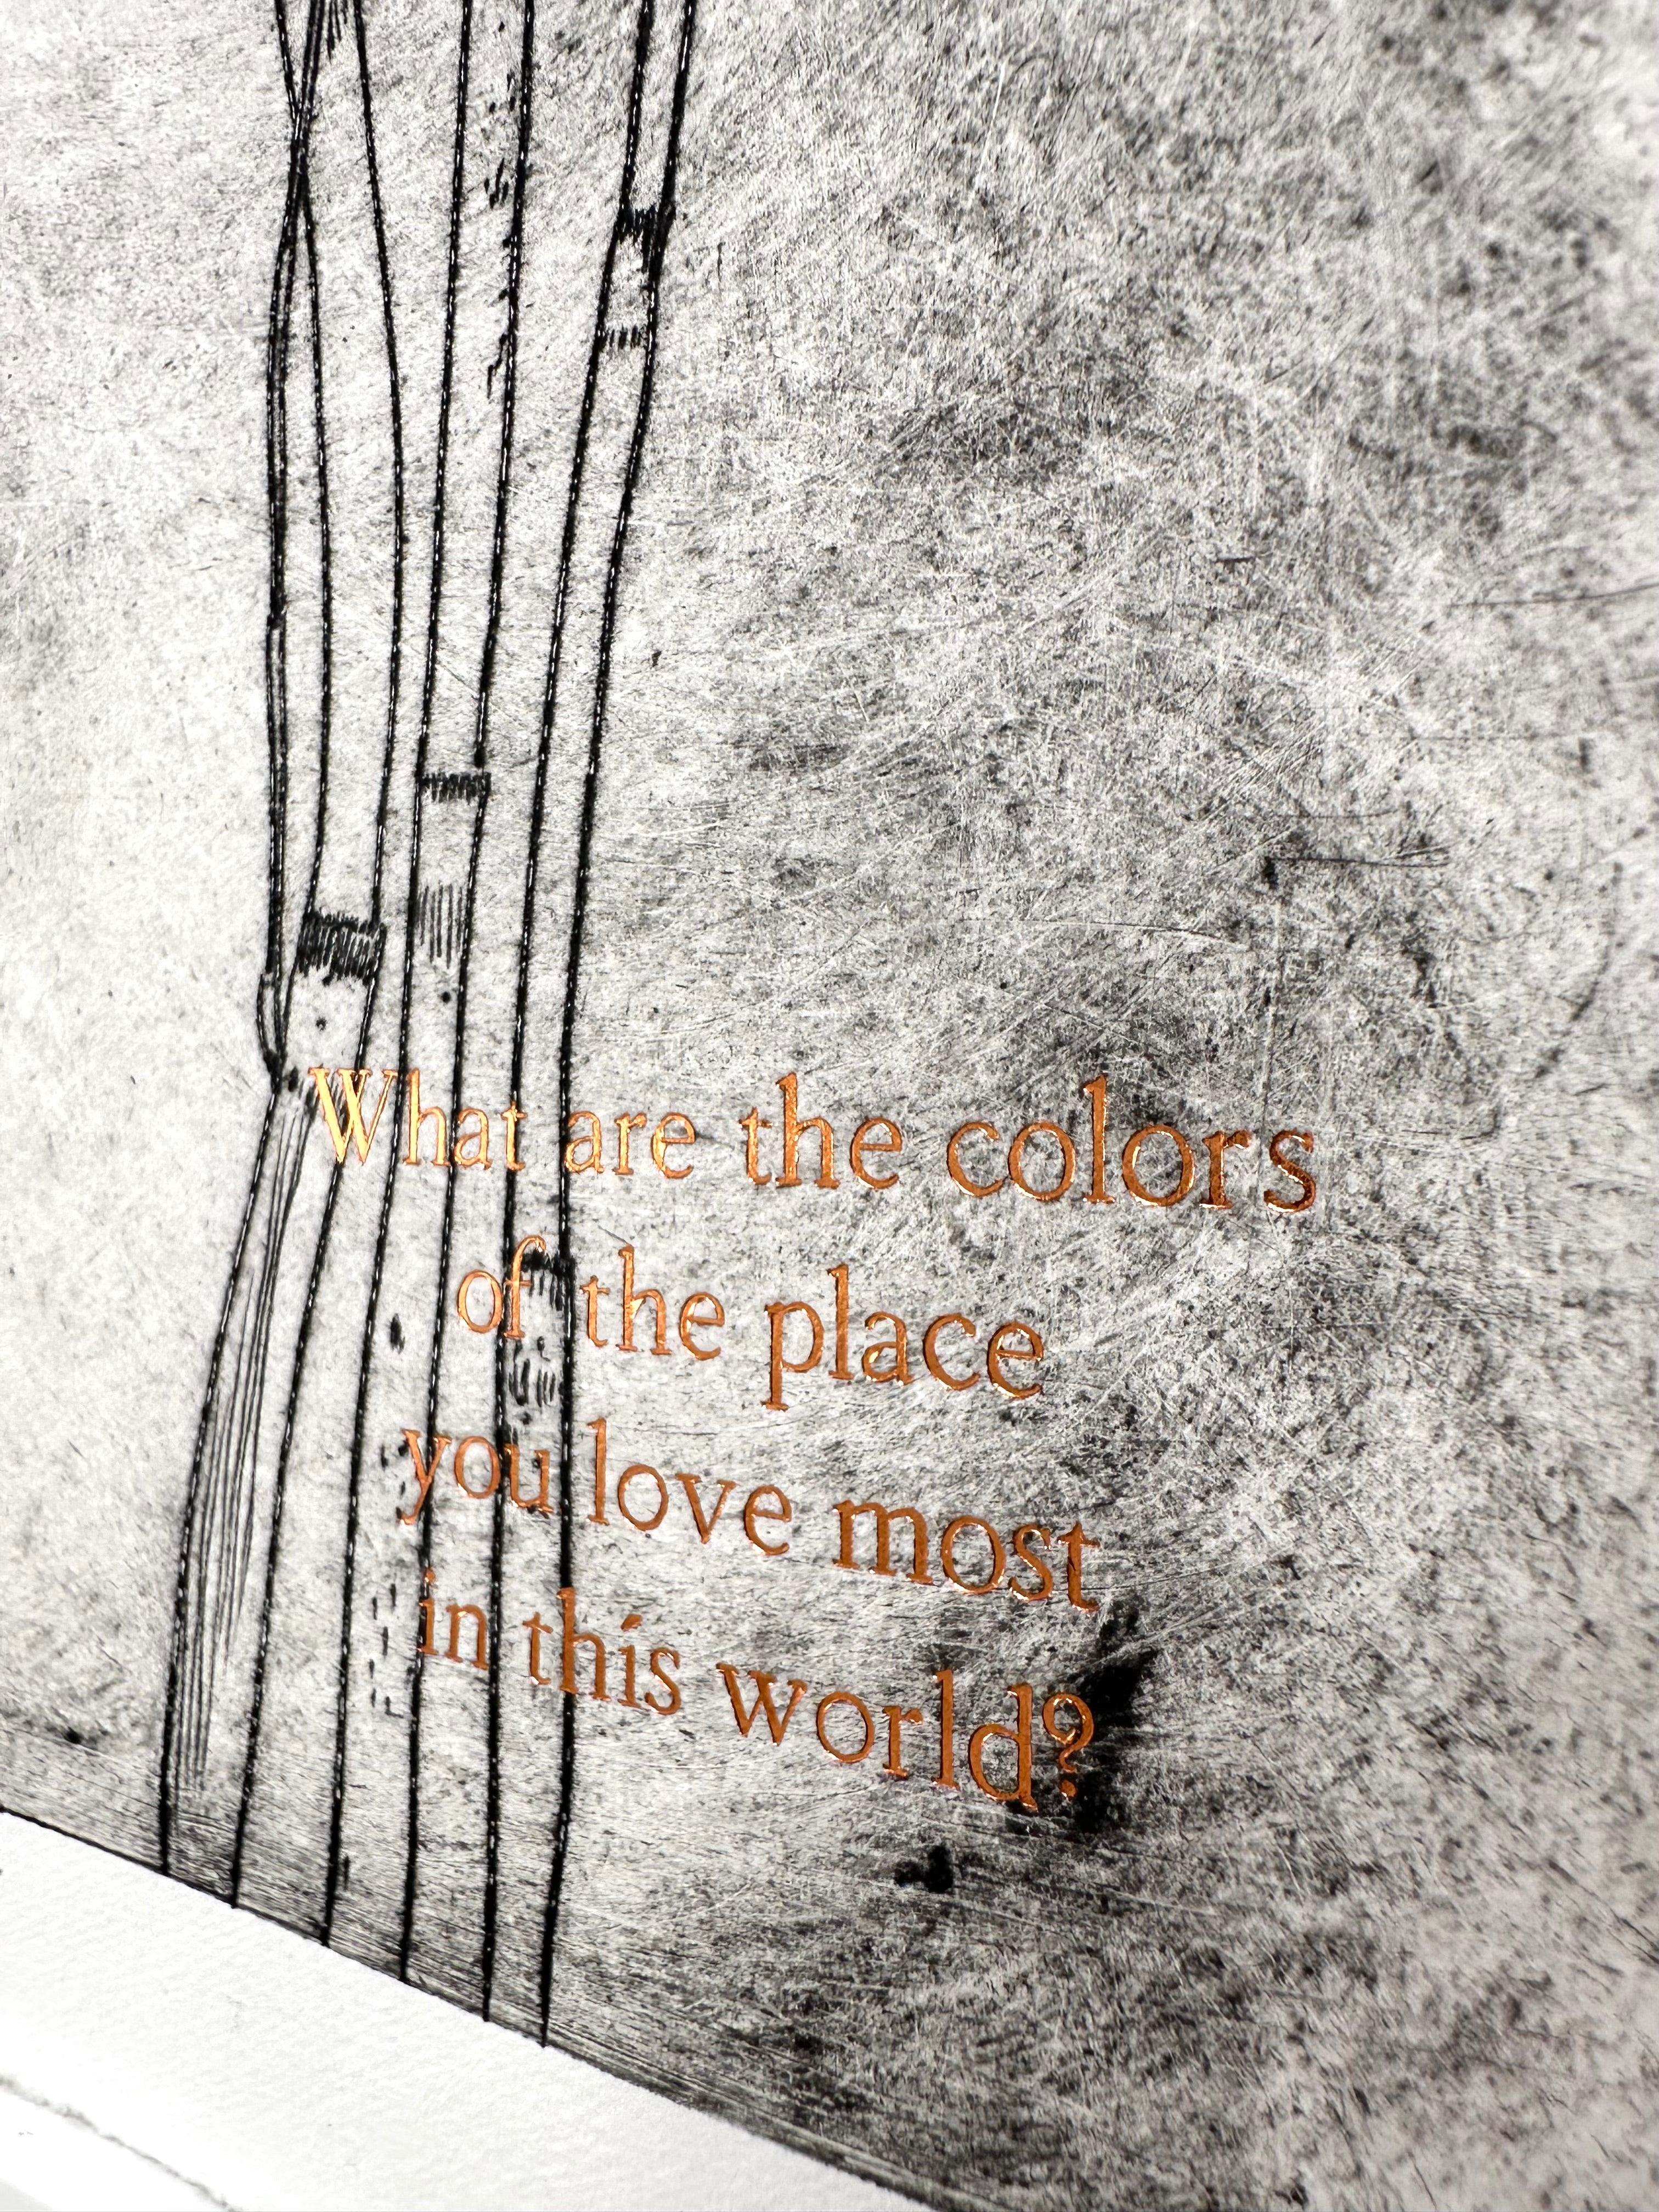 What are the colors
of the place
you love most
in this world?